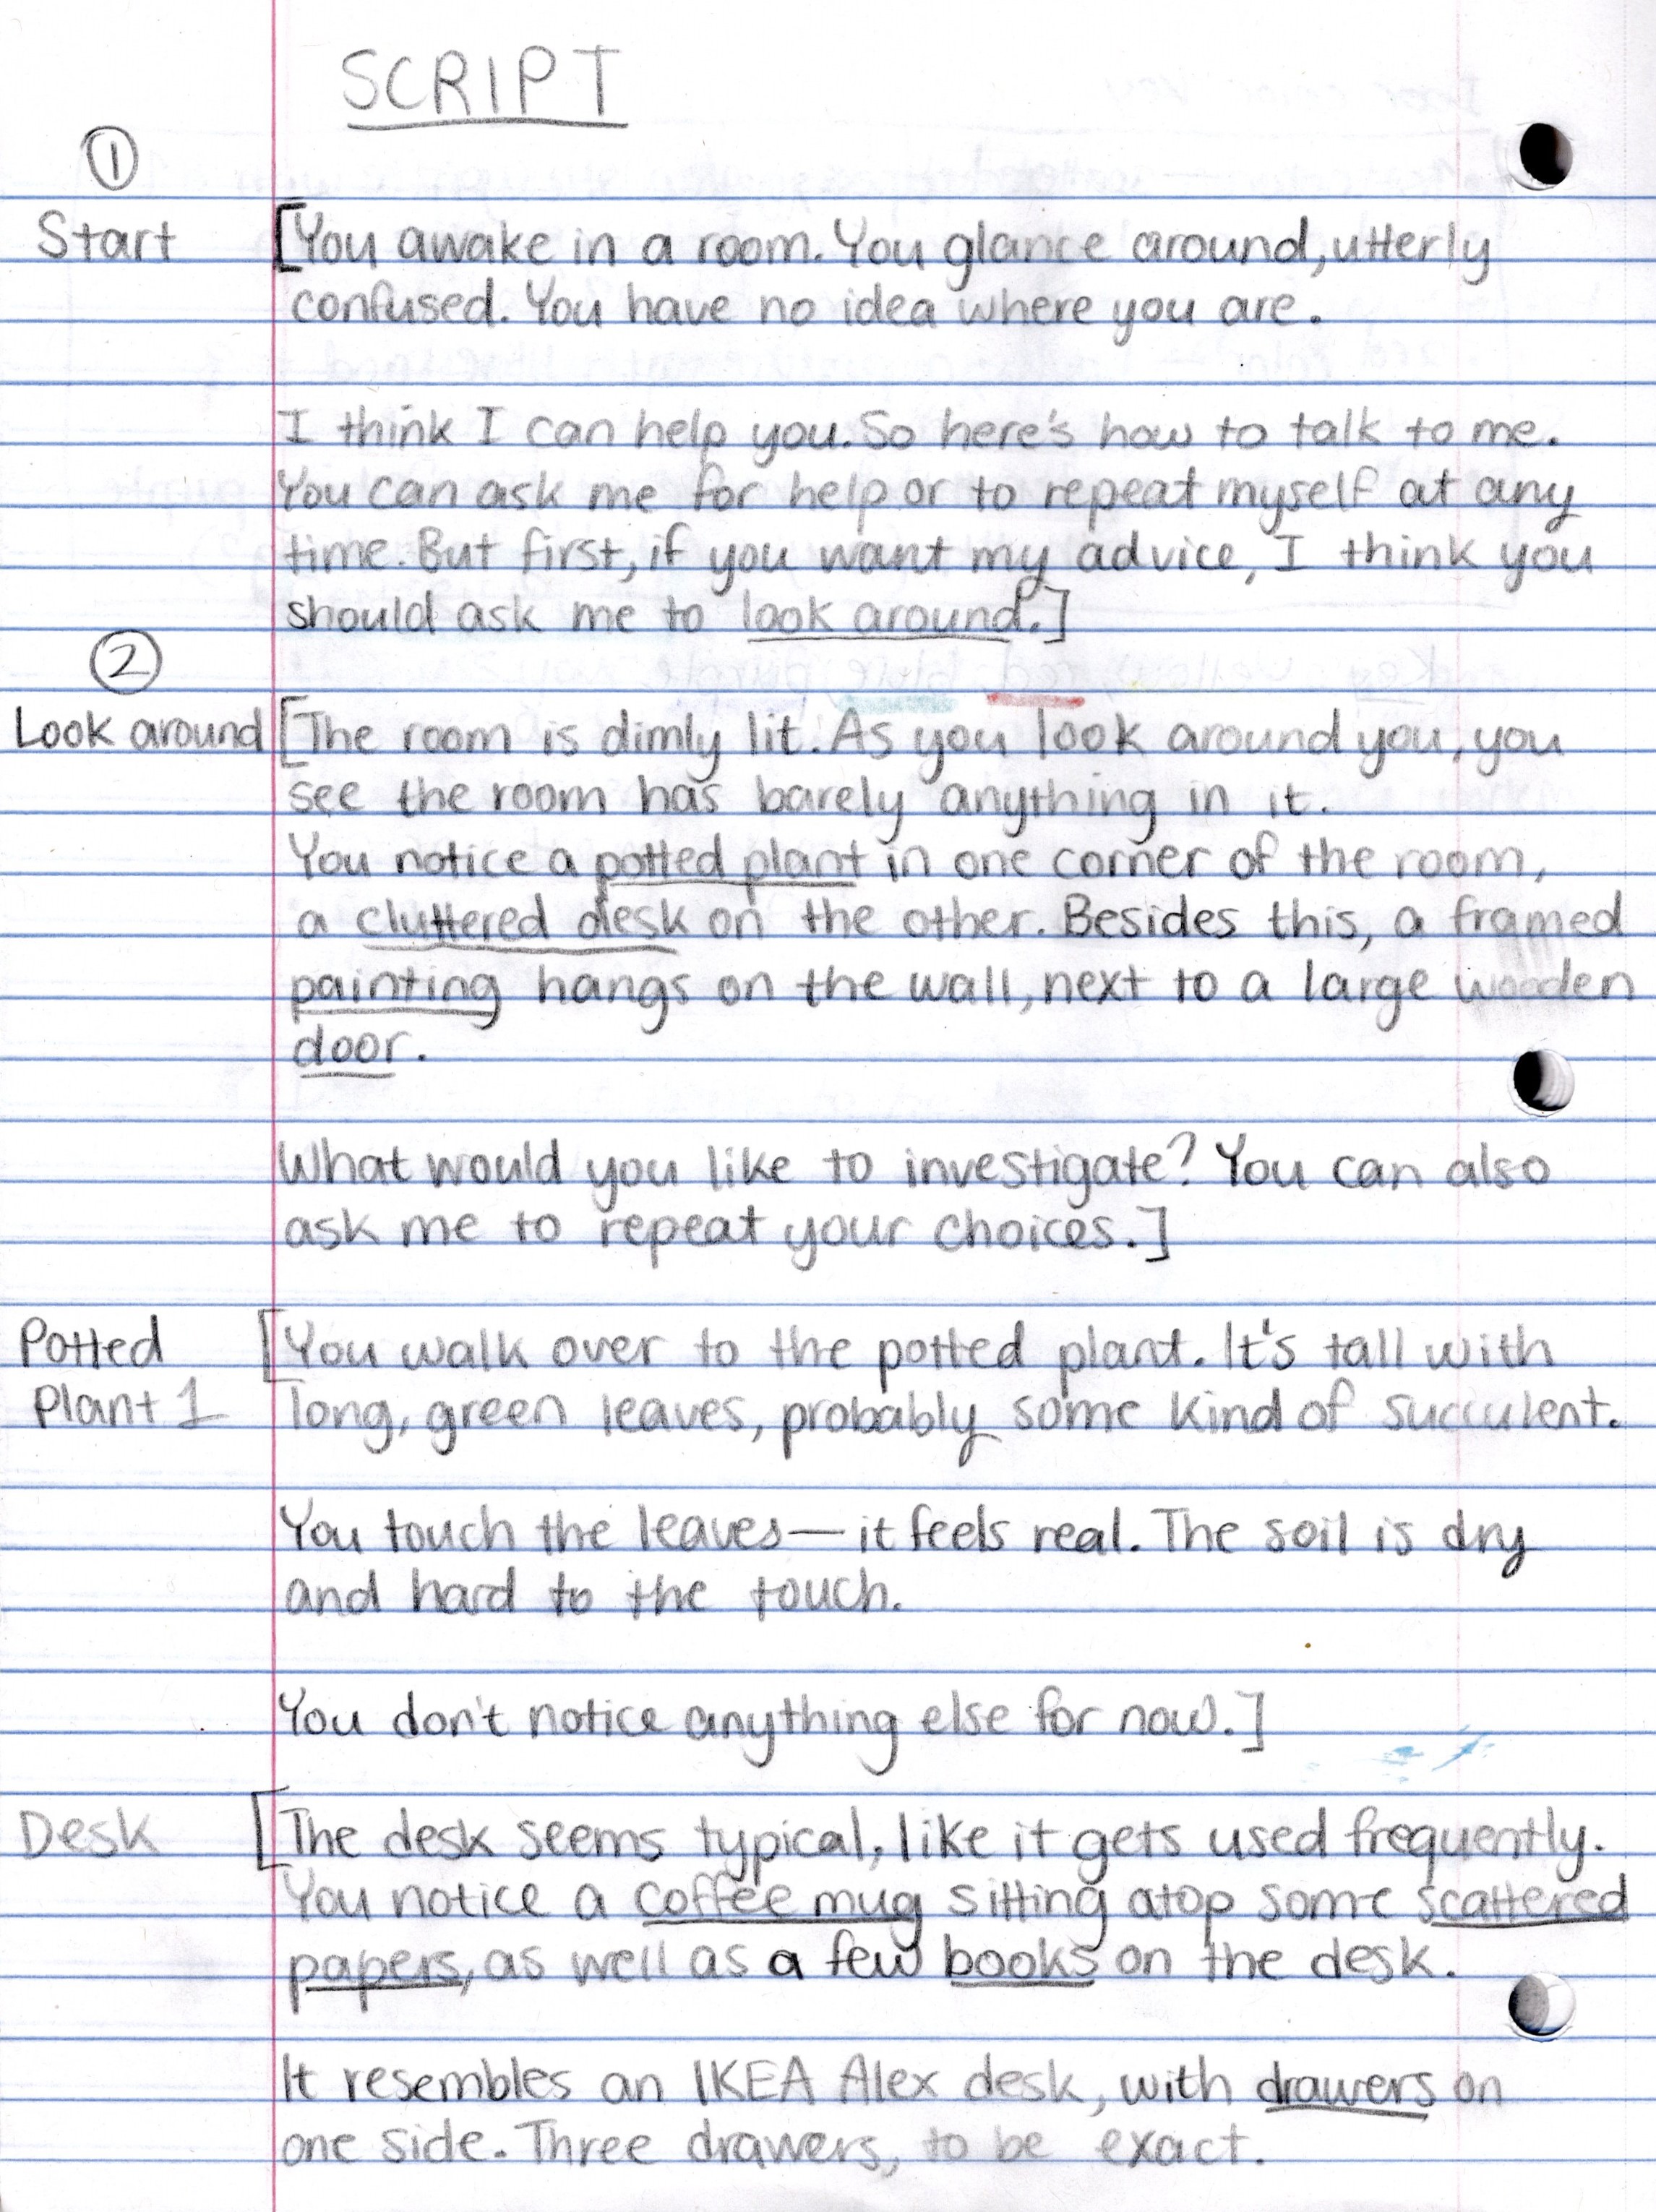 SCRIPT
①
Start [You awake in a room. You glance around, utterly
confused. You have no idea where you are.
I think I can help you. So here's how to talk to me.
You can ask me for help or to repeat myself at any
time. But first, if you want my advice, I think you
should ask me to look around.]
②
Look around [The room is dimly lit. As you look around you, you
see the room has barely anything in it.
You notice a potted plant in one corner of the room,
a cluttered desk on the other. Besides this, a framed
painting hangs on the wall, next to a large wooden
door.
What would you like to investigate? You can also
ask me to repeat your choices.]
Potted [You walk over to the potted plant. It's tall with
Plant 1 long, green leaves, probably some kind of succulent.
You touch the leaves—it feels real. The soil is dry
and hard to the touch.
You don't notice anything else for now.]
Desk [The desk seems typical, like it gets used frequently.
You notice a coffee mug sitting atop some scattered
papers, as well as a few books on the desk.
It resembles an IKEA Alex desk, with drawers on
one side. Three drawers, to be exact.